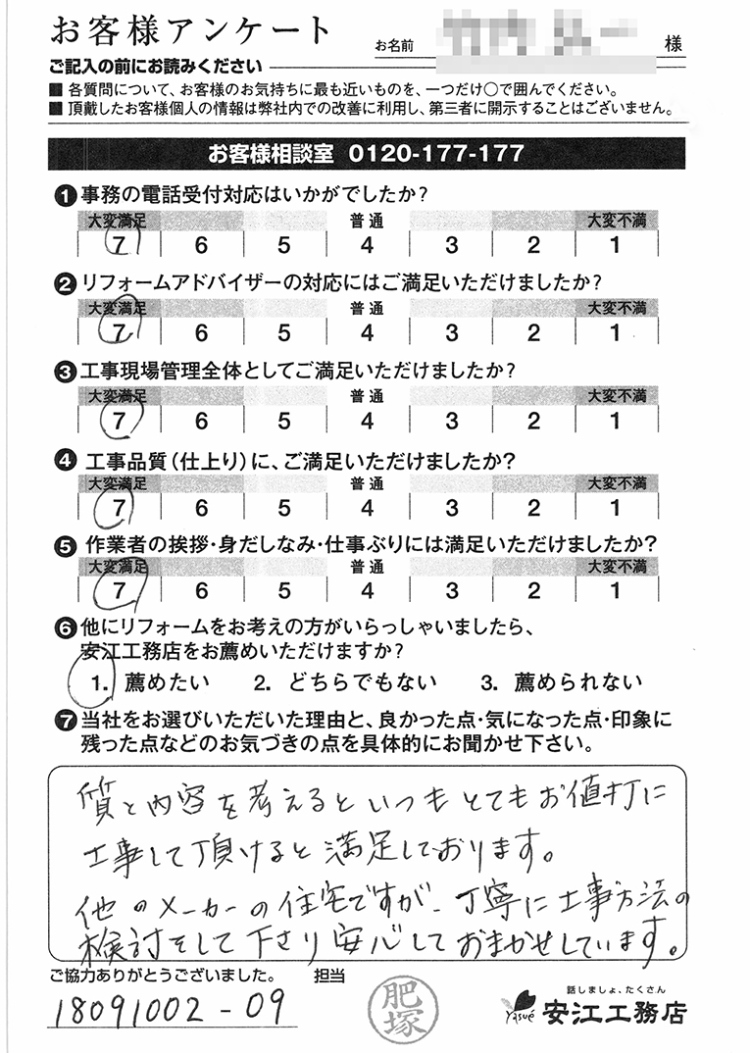 お客様アンケート
お名前 様
ご記入の前にお読みください
■ 各質問について、お客様のお気持ちに最も近いものを、一つだけ○で囲んでください。
■ 頂戴したお客様個人の情報は弊社内での改善に利用し、第三者に開示することはございません。
お客様相談室 0120-177-177
❶事務の電話受付対応はいかがでしたか?
大変満足 普通 大変不満
7 6 5 4 3 2 1
❷リフォームアドバイザーの対応にはご満足いただけましたか?
大変満足 普通 大変不満
7 6 5 4 3 2 1
❸工事現場管理全体としてご満足いただけましたか?
大変満足 普通 大変不満
7 6 5 4 3 2 1
❹工事品質(仕上り)に、ご満足いただけましたか?
大変満足 普通 大変不満
7 6 5 4 3 2 1
❺作業者の挨拶・身だしなみ・仕事ぶりには満足いただけましたか?
大変満足 普通 大変不満
7 6 5 4 3 2 1
❻他にリフォームをお考えの方がいらっしゃいましたら、
安江工務店をお薦めいただけますか?
1. 薦めたい 2. どちらでもない 3. 薦められない
❼当社をお選びいただいた理由と、良かった点・気になった点・印象に
残った点などのお気づきの点を具体的にお聞かせ下さい。
質と内容を考えるといつもとてもお値打に
工事して頂けると満足しております。
他のメーカーの住宅ですが、丁寧に工事方法の
検討をして下さり安心しておまかせしています。
ご協力ありがとうございました。 担当
18091002-09
肥塚
話しましょ、たくさん
Yasué 安江工務店